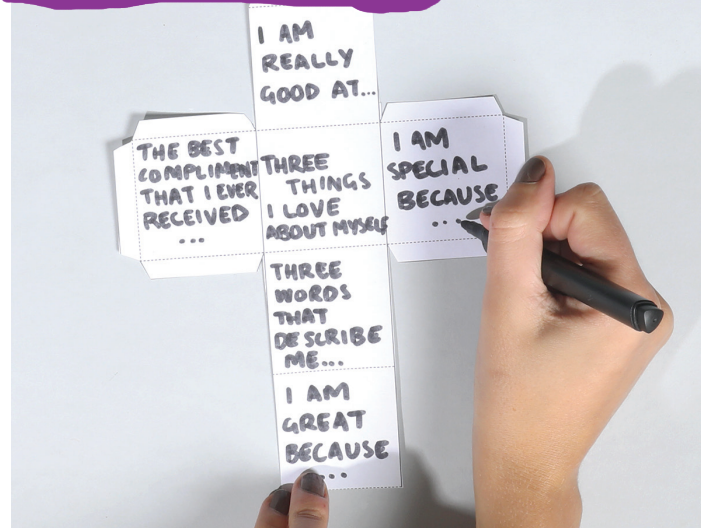 I AM
REALLY
GOOD AT...
THE BEST
COMPLIMENT
THAT I EVER
RECEIVED
...
THREE
THINGS
I LOVE
ABOUT MYSELF
I AM
SPECIAL
BECAUSE
...
THREE
WORDS
THAT
DESCRIBE
ME...
I AM
GREAT
BECAUSE
...